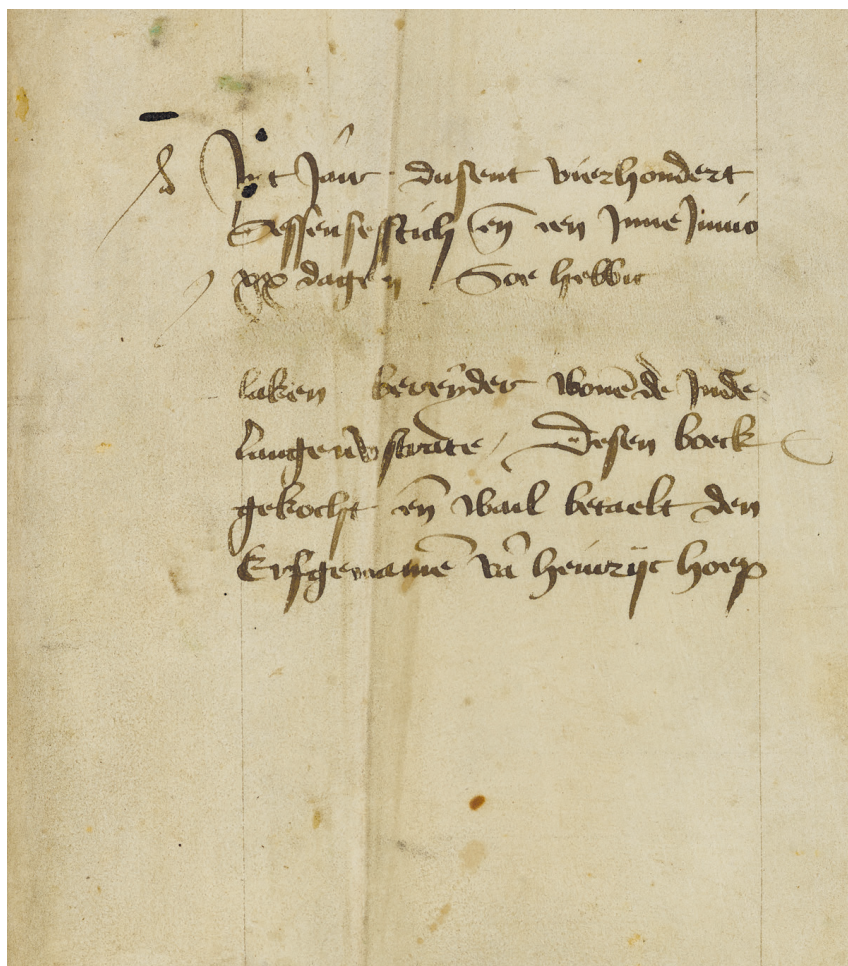 Int Jair dusent vierhondert
Sessensesstich en̄ een Inne Junio
xxx dagen Soe hebbic
laken bereyder wonēde Inde
langen strate / Desen boeck
gekocht en̄ wail betaelt den
Erfgenamē vā heinrijc hoep